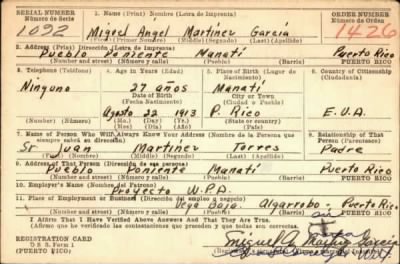 SERIAL NUMBER
Número de Serie
1092
1. Name (Print) Nombre (Letra de Imprenta)
Miguel Angel Martinez García
(First) (Primer Nombre) (Middle) (Segundo) (Last) (Apellido)
ORDER NUMBER
Número de Orden
1426
2. Address (Print) Dirección (Letra de Imprenta)
Pueblo Poniente Manatí Puerto Rico
(Number and street) (Número y calle) (Town) (Pueblo) (Barrio) PUERTO RICO
3. Telephone (Teléfono)
Ninguno
(Number) (Número)
4. Age in Years (Edad)
27 años
Date of Birth
(Fecha Nacimiento)
Agosto 22 1913
(Mo.) (Day) (Yr.)
(Mes) (Día) (Año)
5. Place of Birth (Lugar de Nacimiento)
Manatí
City or Town
(Ciudad o Pueblo)
P. Rico
(State or country)
6. Country of Citizenship
(Ciudadanía)
E.U.A.
7. Name of Person Who Will Always Know Your Address (Nombre de la Persona que siempre sabrá su dirección)
Sr Juan Martinez Torres
(First) (Nombre) (Middle) (Segundo) (Last) (Apellido)
8. Relationship of That Person (Parentesco)
Padre
9. Address of That Person (Dirección de esa persona)
Pueblo Poniente Manatí Puerto Rico
(Number and street) (Número y calle) (Town) (Pueblo) (Barrio) PUERTO RICO
10. Employer's Name (Nombre del Patrono)
Proyecto W.P.A.
11. Place of Employment or Business (Dirección del empleo o negocio)
Vega Baja Algarrobo Puerto Rico
(Number and street) (Número y calle) (Town) (Pueblo) (Barrio) PUERTO RICO
I Affirm That I Have Verified Above Answers And That They Are True.
Afirmo que he verificado las contestaciones que preceden y que todas son correctas.
REGISTRATION CARD
D. S. S. Form 1
(PUERTO RICO)
Miguel A Martinez García